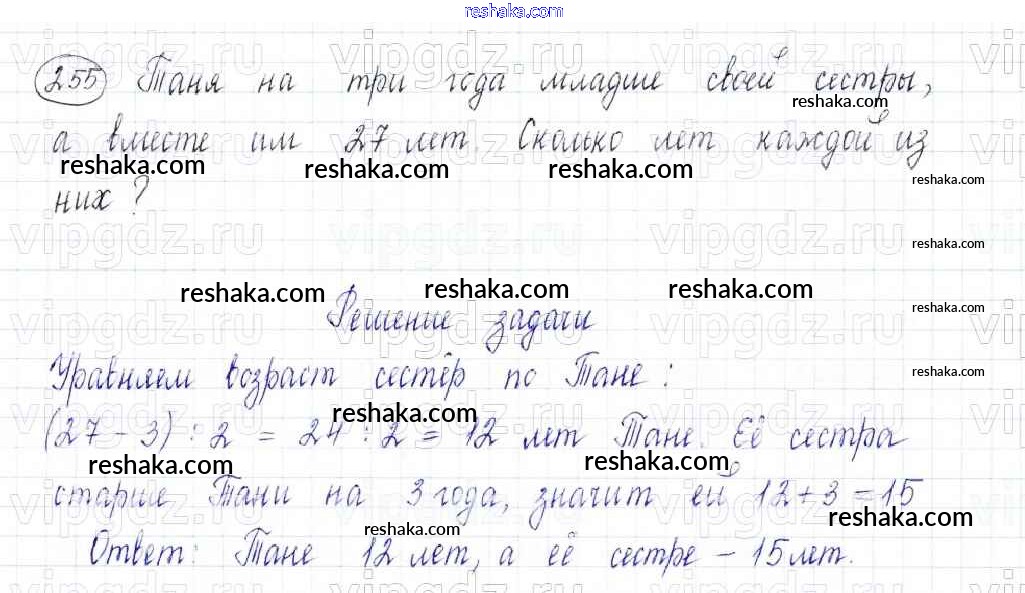 reshaka.com
255 Таня на три года младше своей сестры,
reshaka.com
а вместе им 27 лет. Сколько лет каждой из
reshaka.com reshaka.com reshaka.com reshaka.com
них?
vipgdz.ru vipgdz.ru vipgdz.ru reshaka.com
reshaka.com reshaka.com reshaka.com reshaka.com
Решение задачи
Уравняем возраст сестёр по Тане: reshaka.com
reshaka.com
(27 - 3) : 2 = 24 : 2 = 12 лет Тане. Её сестра
reshaka.com reshaka.com
старше Тани на 3 года, значит ей 12 + 3 = 15
reshaka.com reshaka.com
Ответ: Тане 12 лет, а её сестре - 15 лет.